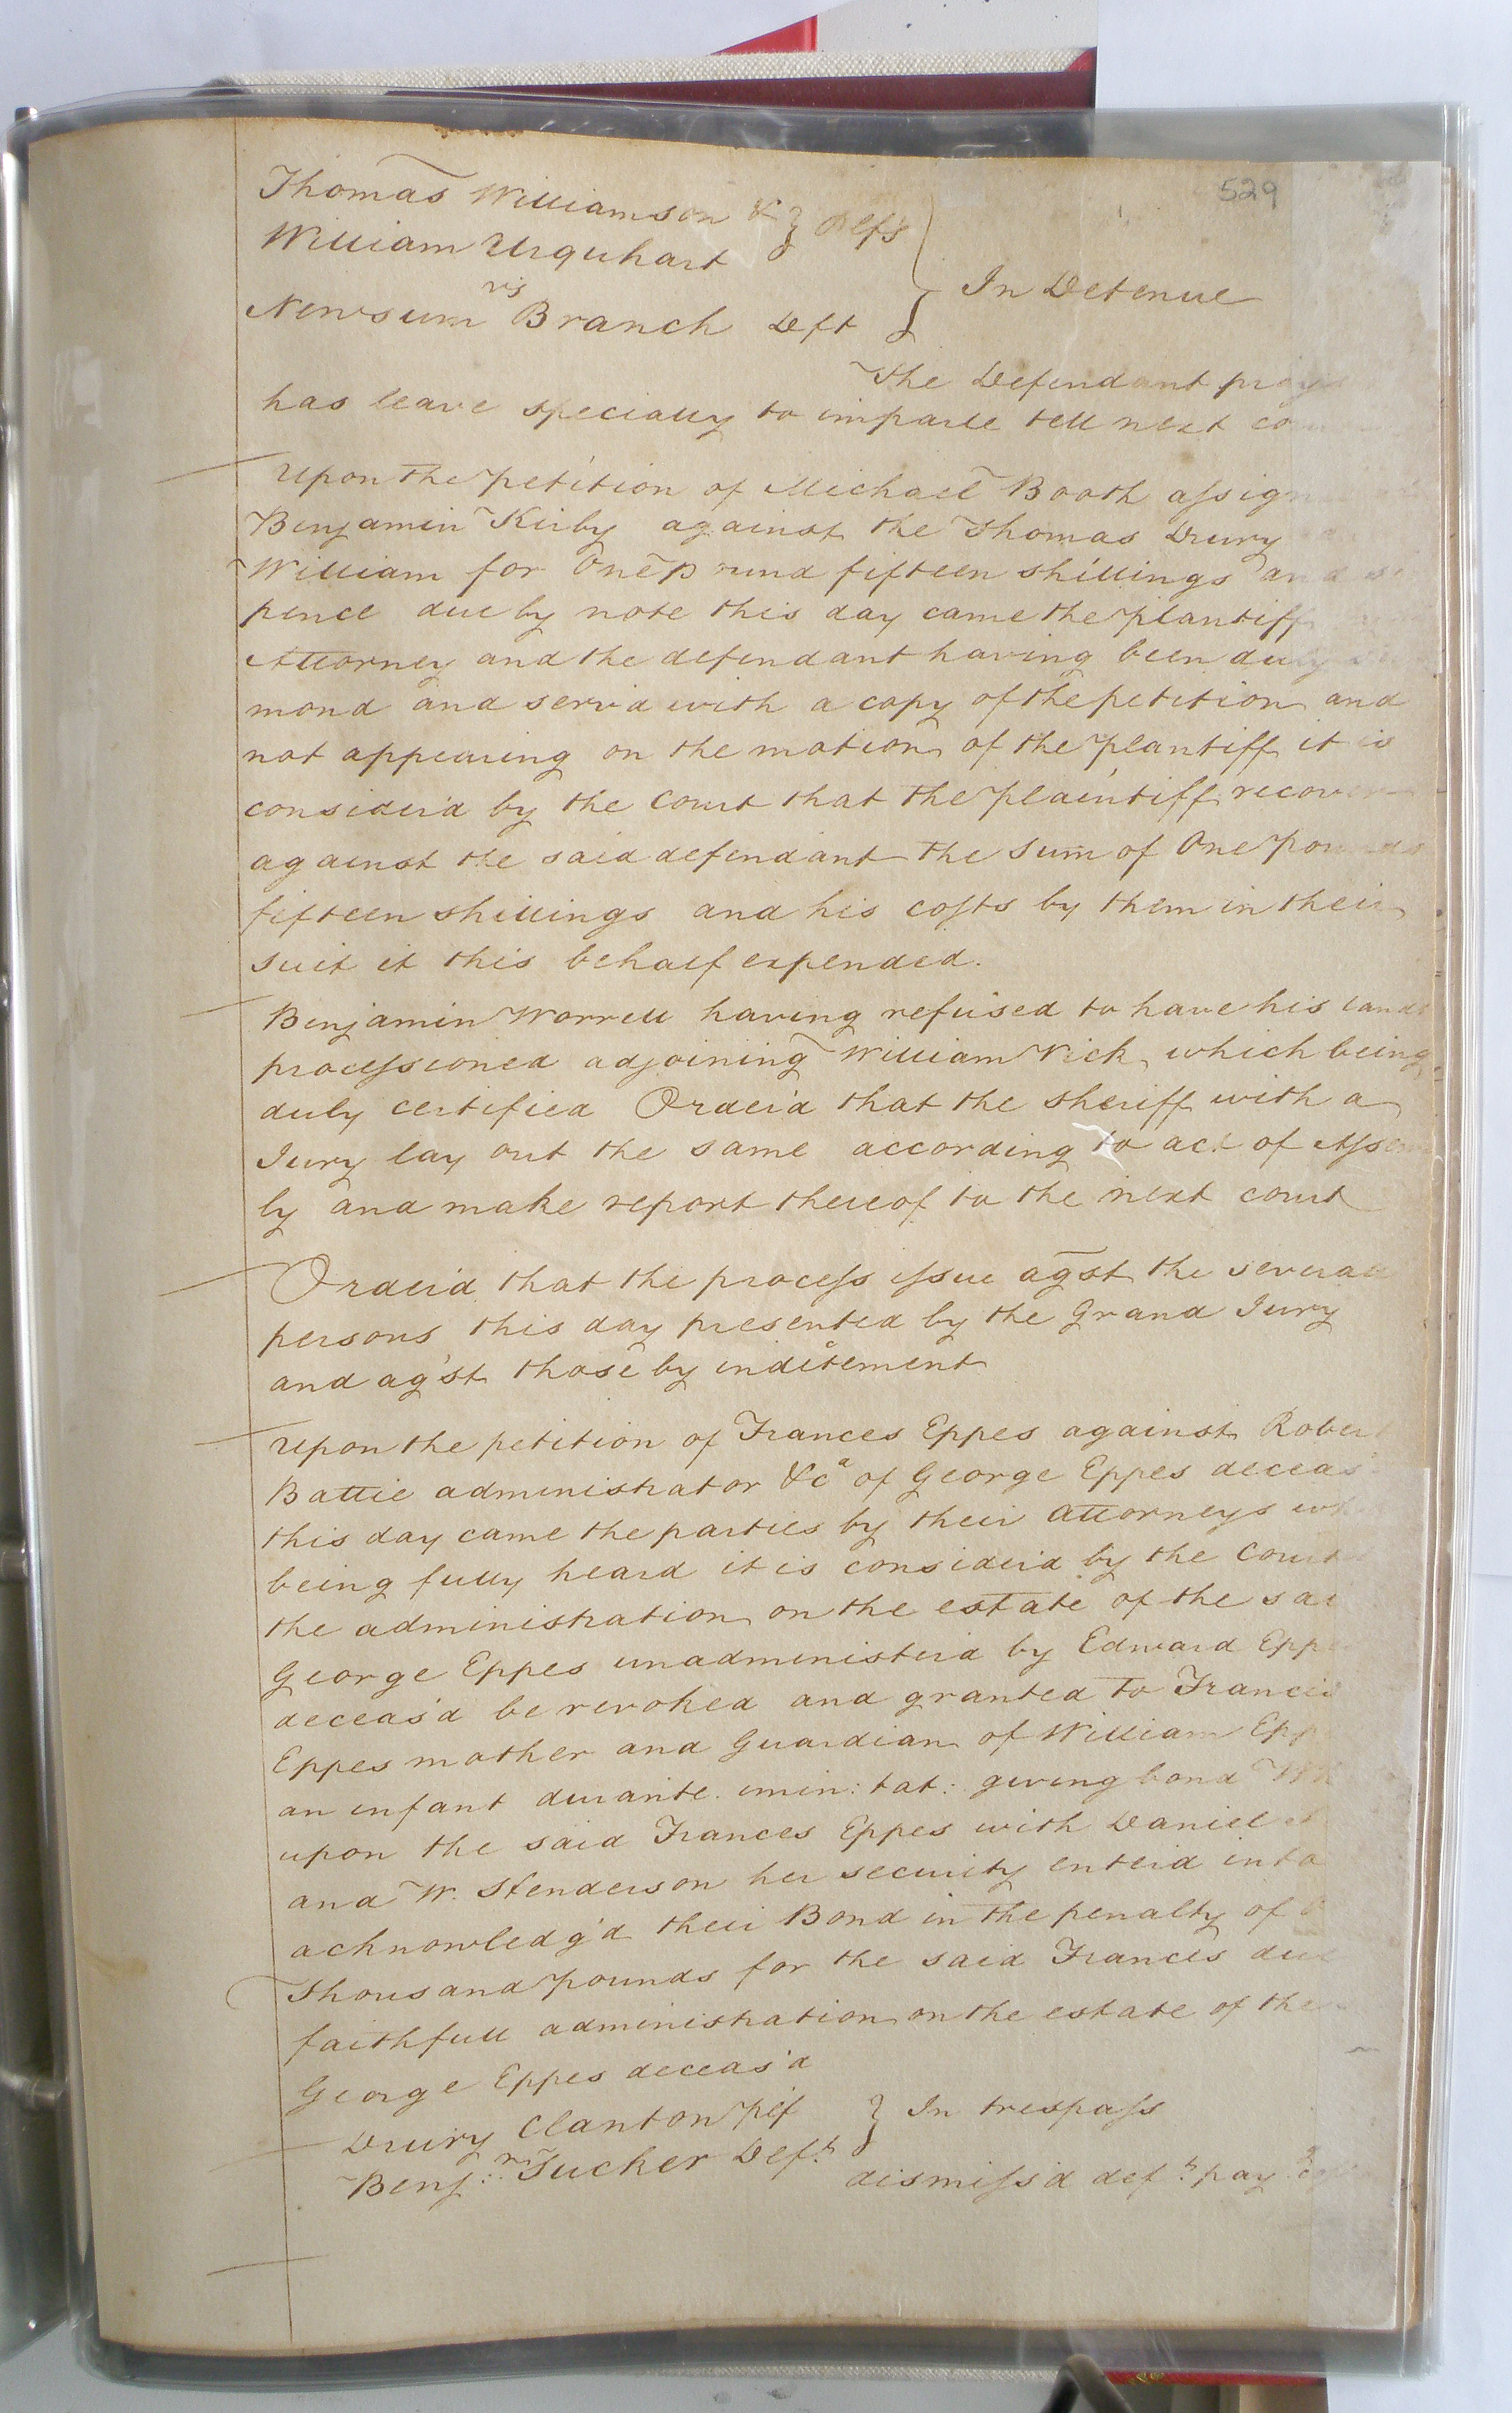 529
Thomas Williamson & } Plfs
William Urquhart
vs } In Detenue
Newsum Branch Deft
The Defendant prays
has leave specially to imparle till next co
Upon the petition of Michael Booth assign
Benjamin Kirby against the Thomas Drury
William for One Pound fifteen shillings and
pence due by note this day came the plantiff
Attorney and the defendant having been duly
mond and serv'd with a copy of the petition and
not appearing on the motion of the plantiff it is
consider'd by the Court that the plaintiff recover
against the said defendant the Sum of One Pound
fifteen shillings and his costs by them in their
suit it this behalf expended.
Benjamin Worrell having refused to have his lands
processioned adjoining William Vick which being
duly certified Order'd that the sheriff with a
Jury lay out the same according to act of Assem
ly and make report thereof to the next court
Order'd that the process issue agst the several
persons this day presented by the Grand Jury
and ag'st those by inditement
Upon the petition of Frances Eppes against Robert
Battie administrator &ca of George Eppes deceas
this day came the parties by their Attorneys wh
being fully heard it is consider'd by the Court
the administration on the estate of the sai
George Eppes unadminister'd by Edward Eppe
deceas'd be revoked and granted to Francis
Eppes mother and Guardian of William Epp
an infant durante. imin: tat: giving bond Wh
upon the said Frances Eppes with Daniel
and W. Henderson her security enter'd into
acknowledg'd their Bond in the penalty of
Thousand pounds for the said Frances due
faithfull administration on the estate of the
George Eppes deceas'd
Drury Clanton plf } In trespass
vs
Benj: Tucker Deft. dismiss'd deft. pay